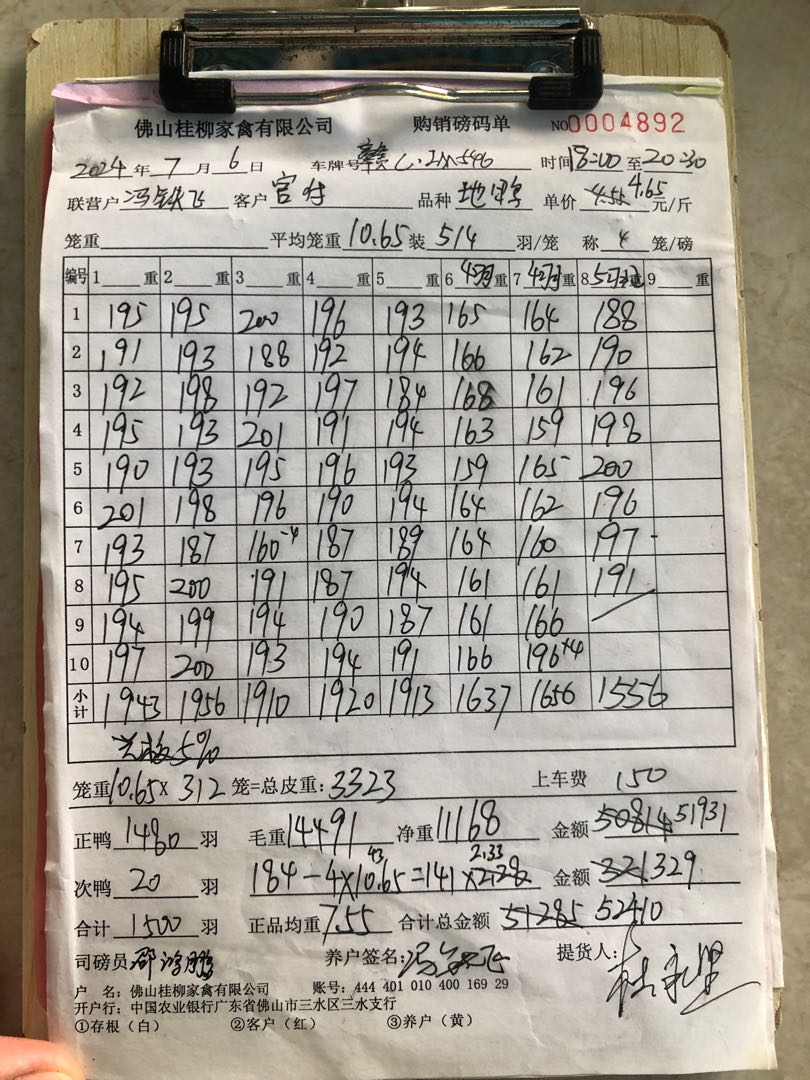 佛山桂柳家禽有限公司 购销磅码单 NO 0004892
2024年7月6日 车牌号 赣 时间18:00至20:30
联营户 冯 飞 客户 官 品种 地 单价 4.55 4.65 元/斤
笼重 平均笼重10.65装5/4羽/笼 称4笼/磅
编号 1 重 2 重 3 重 4 重 5 重 6 重 7 重 8 9 重
1 195 195 200 196 193 165 164 188
2 191 193 188 192 194 166 162 190
3 192 198 192 197 184 168 161 196
4 195 193 201 191 194 163 159 198
5 190 193 195 196 193 159 165 200
6 201 198 196 190 194 164 162 196
7 193 187 160-4 187 189 164 160 197
8 195 200 191 187 194 161 161 191
9 194 199 194 190 187 161 166
10 197 200 193 194 191 166 196+4
小计 1943 1956 1910 1920 1913 1637 1656 1556
5%
笼重10.65×312笼=总皮重:3323 上车费 150
正鸭1480羽 毛重14491 净重11168 金额50814 51931
43 2.33
次鸭20羽 184-4×10.65=141×2.28 金额321 329
合计1500羽 正品均重7.55 合计总金额51285 52410
司磅员 邵鸿鹏 养户签名: 冯 飞 提货人: 杜
户 名:佛山桂柳家禽有限公司 账号:444 401 010 400 169 29
开户行:中国农业银行广东省佛山市三水区三水支行
①存根(白) ②客户(红) ③养户(黄)